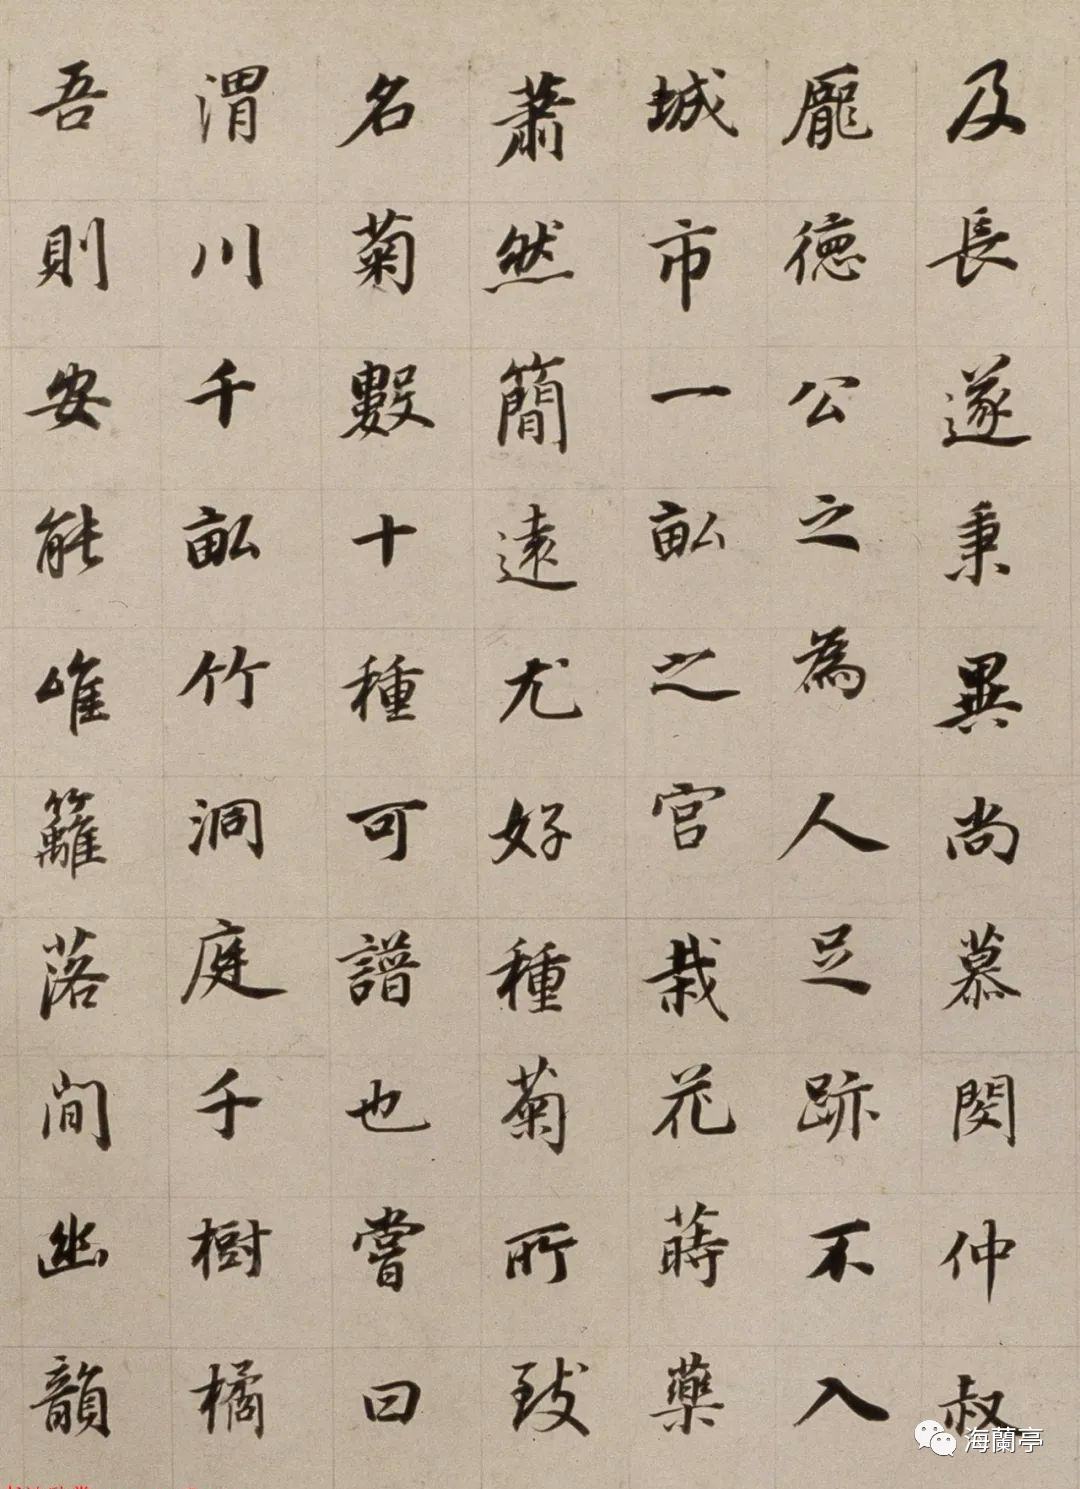 及長遂秉異尚慕閔仲叔
龐德公之為人足跡不入
城市一畝之宮栽花蒔藥
蕭然簡遠尤好種菊所致
名菊數十種可譜也嘗曰
渭川千畝竹洞庭千樹橘
吾則安能唯籬落間幽韻
海蘭亭